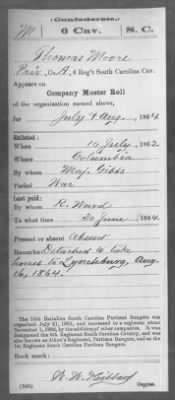 (Confederate.)
M 6 Cav. S.C.
Thomas Moore
Priv, Co. A, 6 Reg't South Carolina Cav.
Appears on
Company Muster Roll
of the organization named above,
for July & Aug, 1864.
Enlisted:
When 19 July, 1862
Where Columbia
By whom Maj. Gibbs
Period War
Last paid:
By whom R. Ward
To what time 30 June, 1864.
Present or absent Absent
Remarks: Detached to take
horses to Lynchburg, Aug
16, 1864.
The 16th Battalion South Carolina Partisan Rangers was
organized July 21, 1862, and increased to a regiment about
November 1, 1862, by the addition of other companies. It was
designated the 6th Regiment South Carolina Cavalry, and was
also known as Aiken's Regiment, Partisan Rangers, and as the
1st Regiment South Carolina Partisan Rangers.
Book mark:
Copyist.